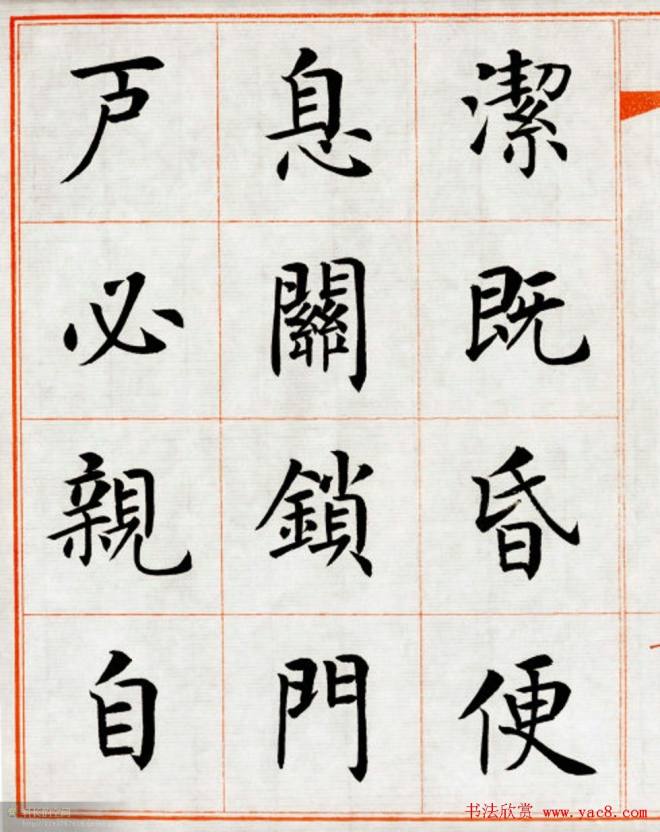 潔既昏便
息關鎖門
戶必親自
书法欣赏 www.yac8.com